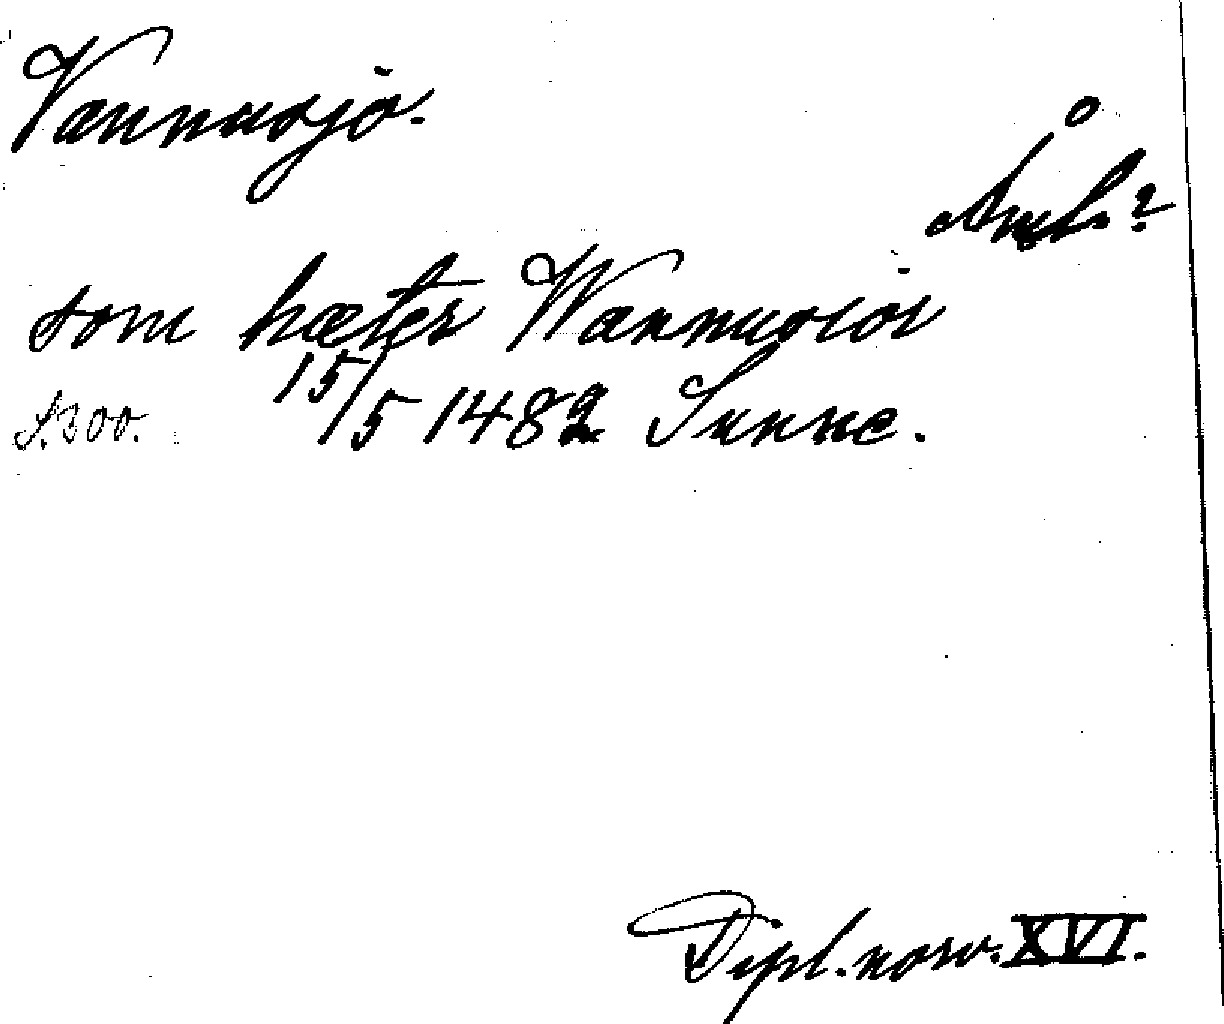 Vannusjö.
Ångl.?
som hæter Wannusiöi
s.300. 15/5 1482 Sunne.
Dipl. norv. XVI.